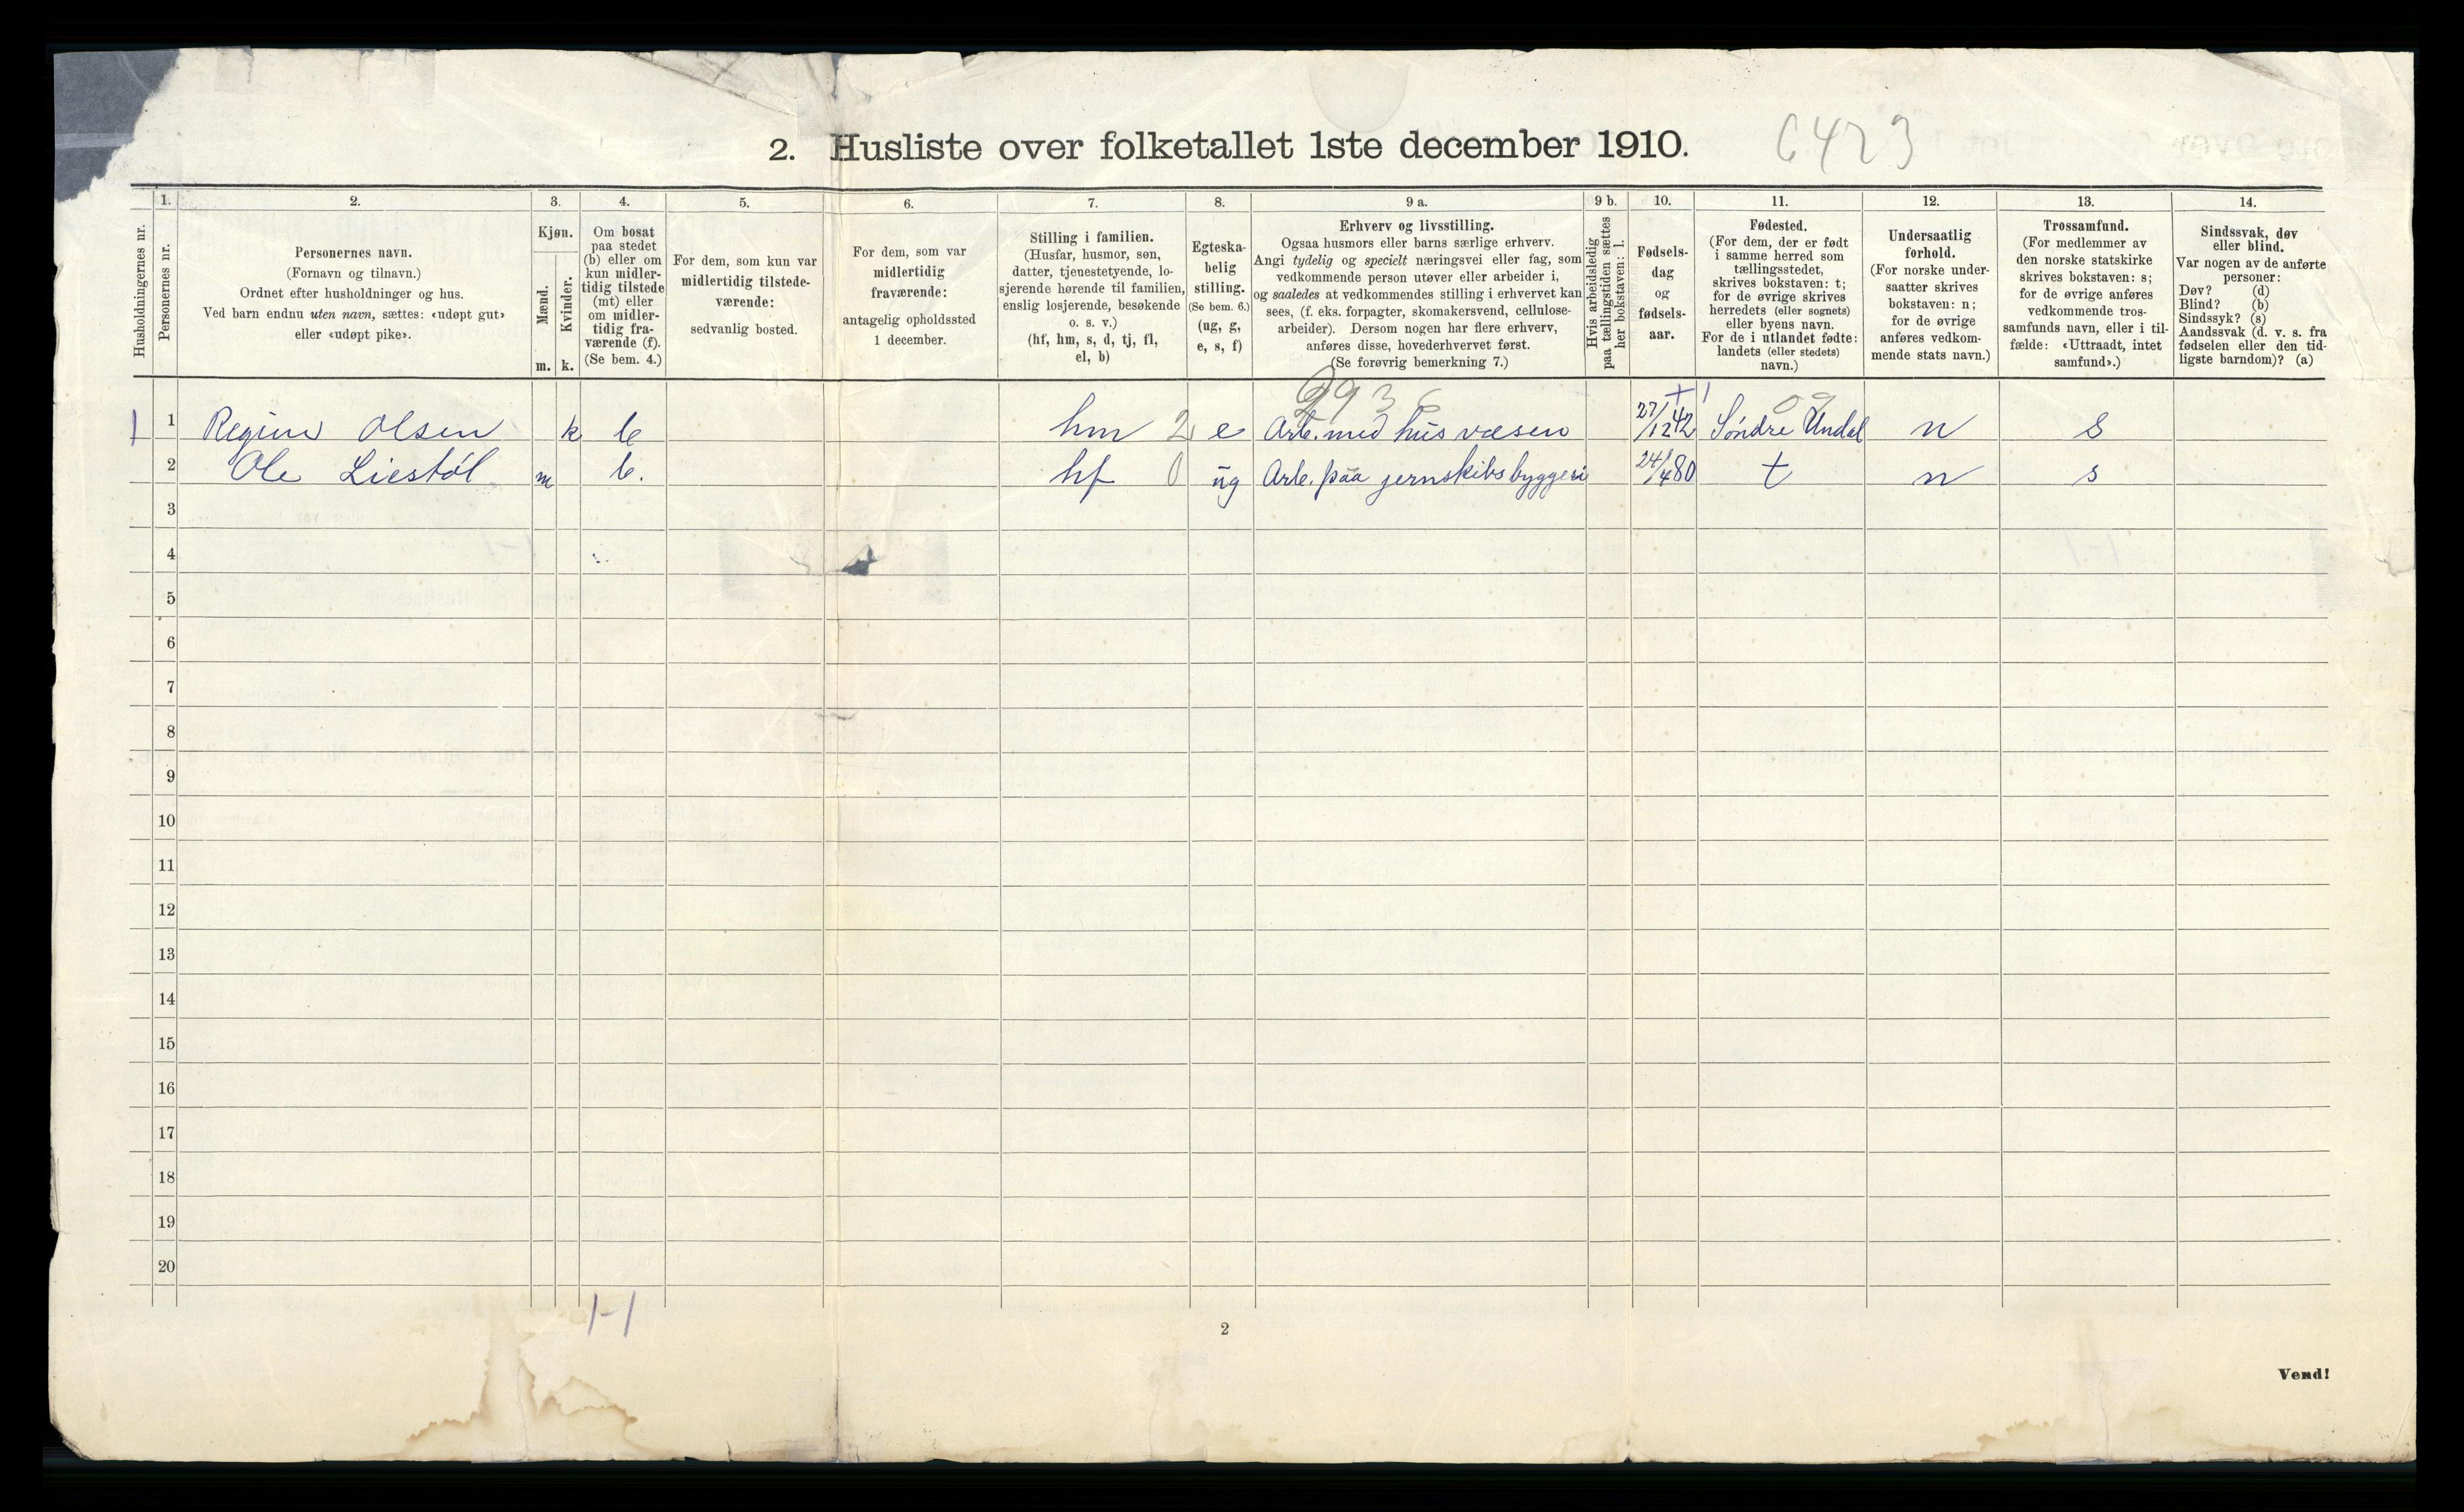 2. Husliste over folketallet 1ste december 1910. 6423
Husholdningernes nr.
1.
Personernes nr.
2.
Personernes navn.
(Fornavn og tilnavn.)
Ordnet efter husholdninger og hus.
Ved barn endnu uten navn, sættes: «udøpt gut»
eller «udøpt pike».
3.
Kjøn.
Mænd.
m.
Kvinder.
k.
4.
Om bosat
paa stedet
(b) eller om
kun midler-
tidig tilstede
(mt) eller
om midler-
tidig fra-
værende (f).
(Se bem. 4.)
5.
For dem, som kun var
midlertidig tilstede-
værende:
sedvanlig bosted.
6.
For dem, som var
midlertidig
fraværende:
antagelig opholdssted
1 december.
7.
Stilling i familien.
(Husfar, husmor, søn,
datter, tjenestetyende, lo-
sjerende hørende til familien,
enslig losjerende, besøkende
o. s. v.)
(hf, hm, s, d, tj, fl,
el, b)
8.
Egteska-
belig
stilling.
(Se bem. 6.)
(ug, g,
e, s, f)
9 a.
Erhverv og livsstilling.
Ogsaa husmors eller barns særlige erhverv.
Angi tydelig og specielt næringsvei eller fag, som
vedkommende person utøver eller arbeider i,
og saaledes at vedkommendes stilling i erhvervet kan
sees, (f. eks. forpagter, skomakersvend, cellulose-
arbeider). Dersom nogen har flere erhverv,
anføres disse, hovederhvervet først.
(Se forøvrig bemerkning 7.)
9 b.
Hvis arbeidsledig
paa tællingstiden sættes
her bokstaven: l.
10.
Fødsels-
dag
og
fødsels-
aar.
11.
Fødested.
(For dem, der er født
i samme herred som
tællingsstedet,
skrives bokstaven: t;
for de øvrige skrives
herredets (eller sognets)
eller byens navn.
For de i utlandet fødte:
landets (eller stedets)
navn.)
12.
Undersaatlig
forhold.
(For norske under-
saatter skrives
bokstaven: n;
for de øvrige
anføres vedkom-
mende stats navn.)
13.
Trossamfund.
(For medlemmer av
den norske statskirke
skrives bokstaven: s;
for de øvrige anføres
vedkommende tros-
samfunds navn, eller i til-
fælde: «Uttraadt, intet
samfund».)
14.
Sindssvak, døv
eller blind.
Var nogen av de anførte
personer:
Døv? (d)
Blind? (b)
Sindssyk? (s)
Aandssvak (d. v. s. fra
fødselen eller den tid-
ligste barndom)? (a)
1 1 Regine Olsen k b hm 2 e Arb. med husvæsen 27/12 42 Søndre Undal n s
2 Ole Liestøl m b. hf 0 ug Arb. paa jernskibsbyggeri 24/4 80 t n s
3
4
5
6
7
8
9
10
11
12
13
14
15
16
17
18
19
20
1-1
2
Vend!